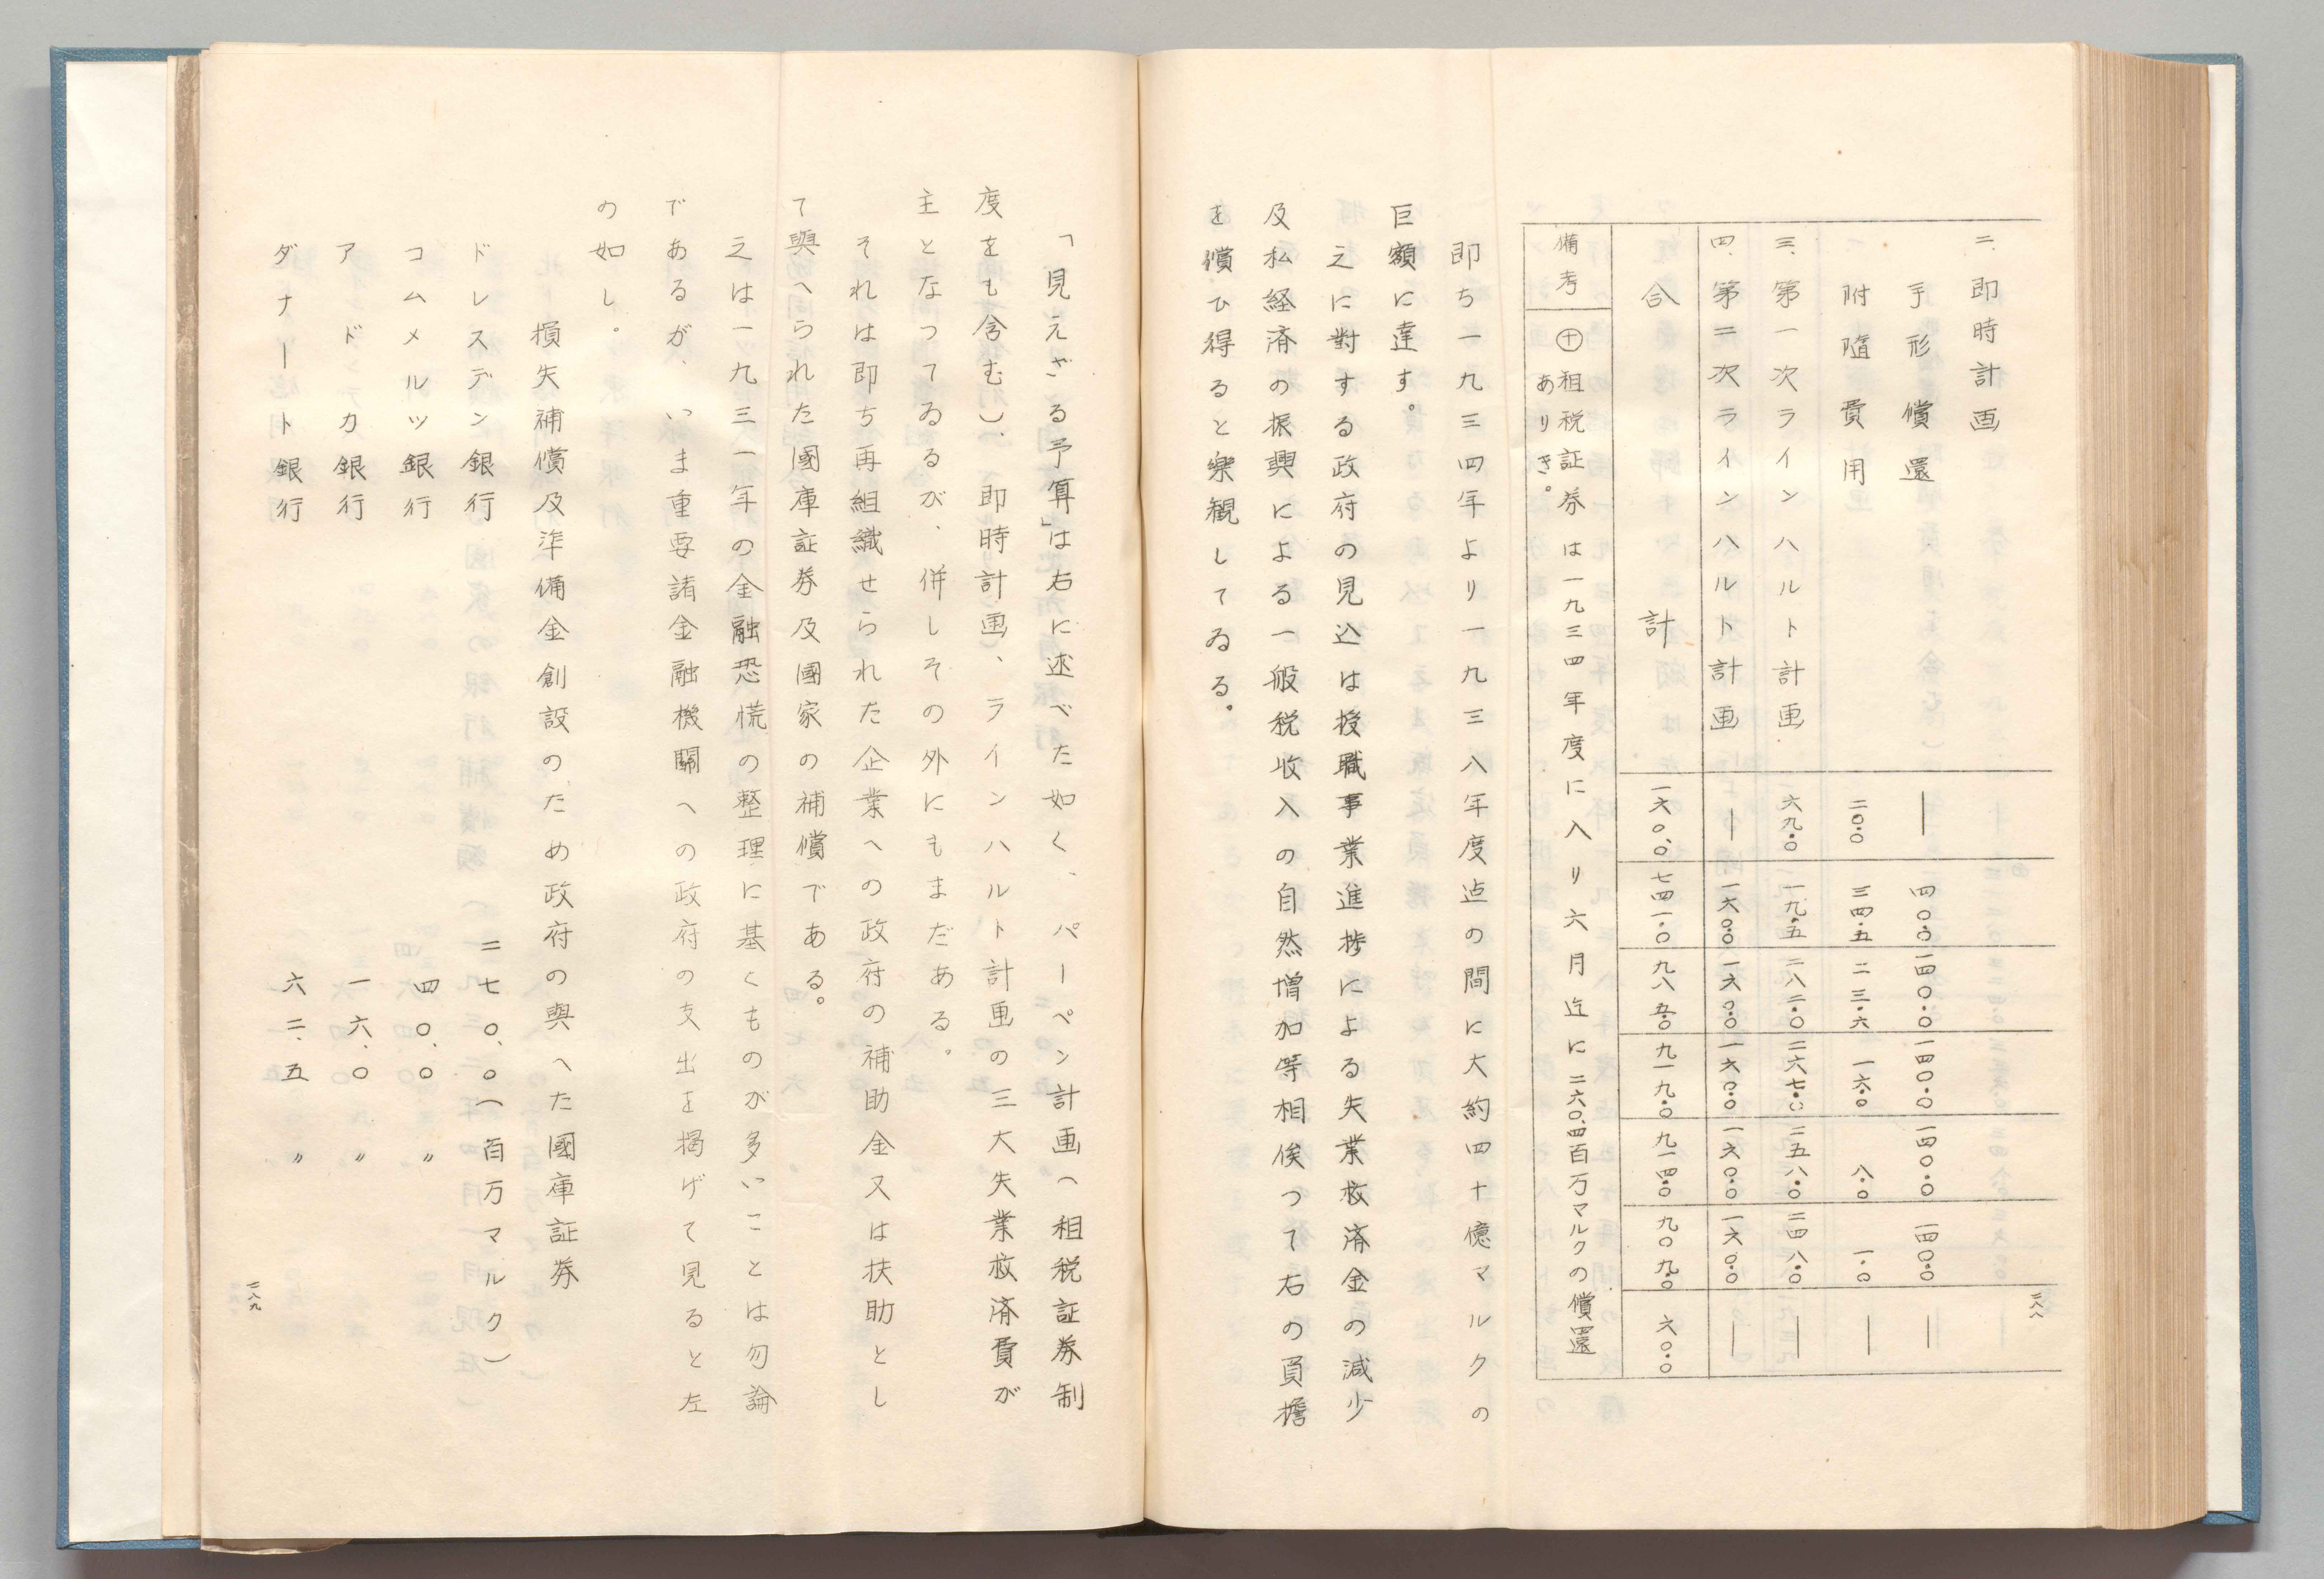 二、即時計画
手形償還 ― 四〇・〇 一四〇・〇 一四〇・〇 一四〇・〇 一四〇・〇 ―
附随費用 二〇・〇 三四・五 二三・六 一六・〇 八・〇 一・〇 ―
三、第一次ラインハルト計画 六九・〇 一九・五 二八二・〇 二六七・〇 二五八・〇 二四八・〇 ―
四、第二次ラインハルト計画 ― 一六〇・〇 一六〇・〇 一六〇・〇 一六〇・〇 一六〇・〇 ―
合計 一六〇・〇 七四一・〇 九八五・〇 九一九・〇 九一四・〇 九〇九・〇 六〇・〇
備考 ㊉租税証券は一九三四年度に入り六月迄に二六〇、四百万マルクの償還
ありき。
即ち一九三四年より一九三八年度迄の間に大約四十億マルクの
巨額に達す。
之に對する政府の見込は授職事業進捗による失業救済金の減少
及私経済の振興による一般税収入の自然増加等相俟つて右の負擔
を償ひ得ると楽観してゐる。
二八八
「見えざる予算」は右に述べた如く、パーペン計画(租税証券制
度をも含む)、即時計画、ラインハルト計画の三大失業救済費が
主となつてゐるが、併しその外にもまだある。
それは即ち再組織せられた企業への政府の補助金又は扶助とし
て與へられた國庫証券及國家の補償である。
之は一九三一年の金融恐慌の整理に基くものが多いことは勿論
であるが、いま重要諸金融機關への政府の支出を掲げて見ると左
の如し。
損失補償及準備金創設のため政府の與へた國庫証券
ドレスデン銀行 二七〇、〇(百万マルク)
コムメルツ銀行 四〇、〇 〃
アドカ銀行 一六、〇 〃
ダナート銀行 六二、五 〃
二八九